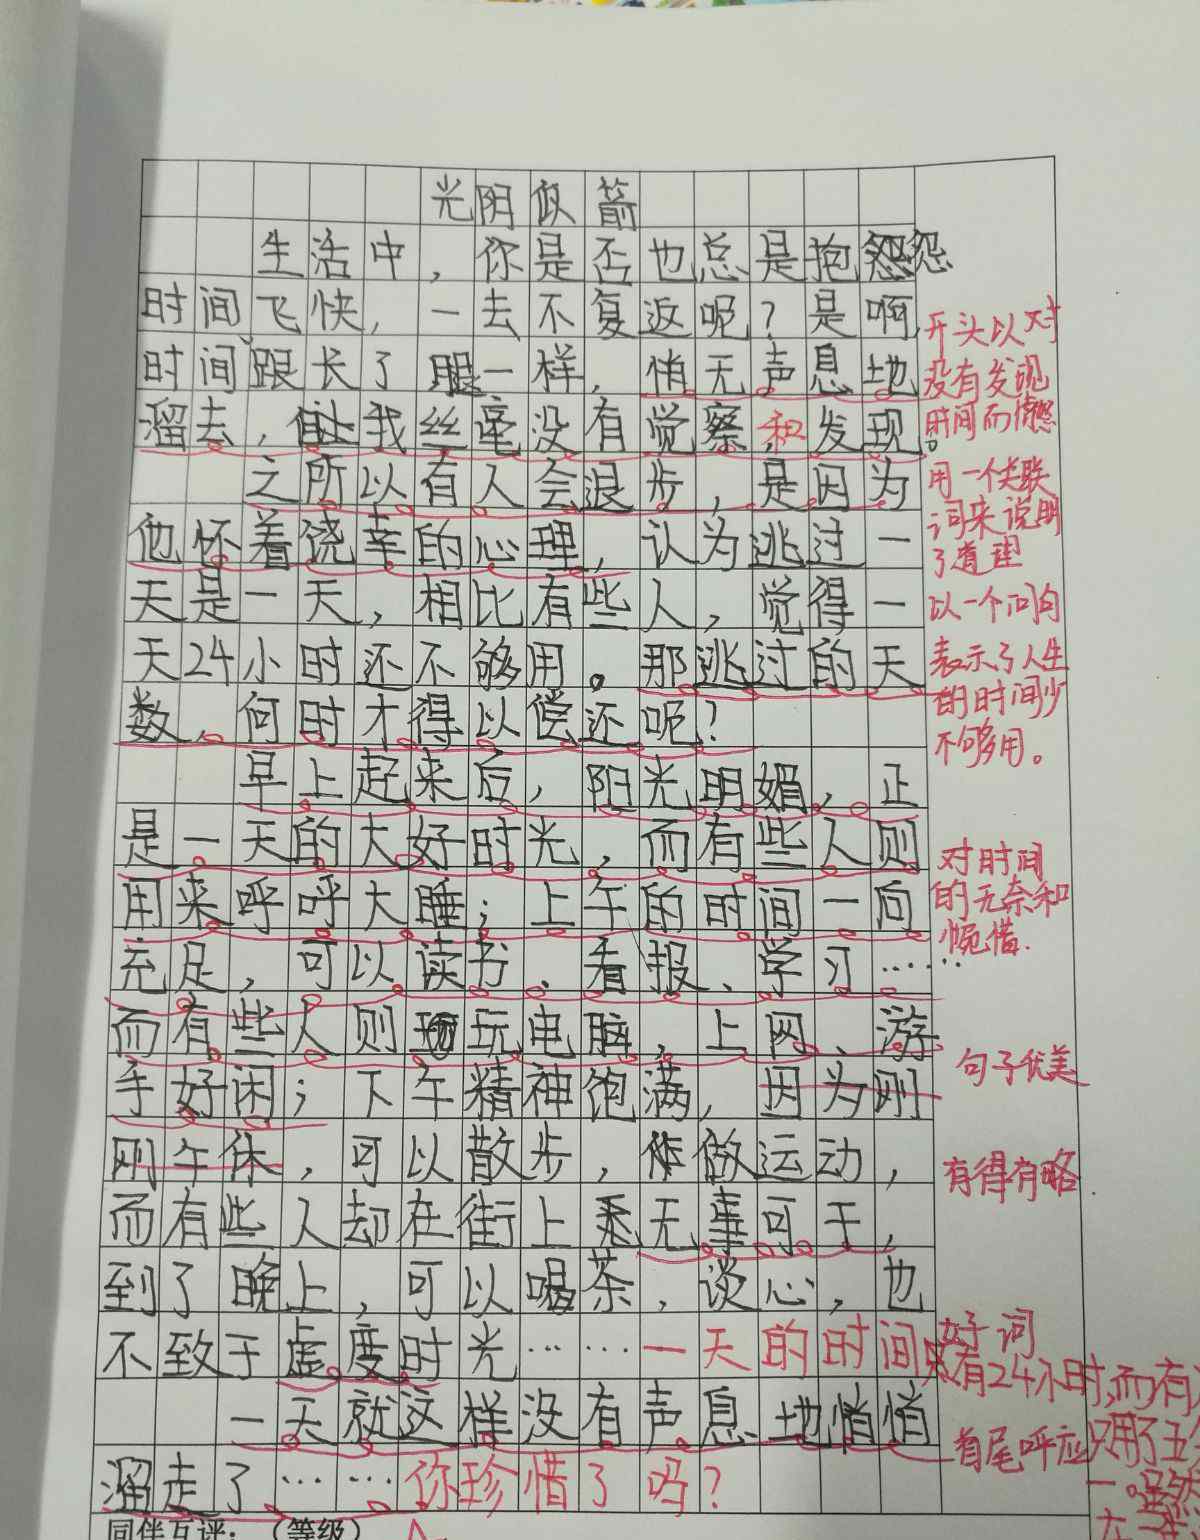 光阴似箭
生活中，你是否也总是抱怨
时间飞快，一去不复返呢？是啊，
时间跟长了腿一样，悄无声息地
溜去，让我丝毫没有觉察和发现。
之所以有人会退步，是因为
他怀着饶幸的心理，认为逃过一
天是一天，相比有些人，觉得一
天24小时还不够用。那逃过的天
数，何时才得以偿还呢？
早上起来后，阳光明媚，正
是一天的大好时光，而有些人则
用来呼呼大睡；上午的时间一向
充足，可以读书、看报、学习……
而有些人则玩电脑，上网、游
手好闲；下午精神饱满，因为刚
刚午休，可以散步，做运动，
而有些人却在街上无事可干，
到了晚上，可以喝茶，谈心，也
不致于虚度时光……一天的时间只
有24小时，而有
只用了五
一天就这样没有声息地悄悄
溜走了……你珍惜了吗？
开头以对
没有发现
时间而
用一个关联
词来说明
了道理
以一个问句
表示了人生
的时间少
不够用。
对时间
的无奈和
惋惜.
句子优美
有得有略
好词
首尾呼应
同伴互评：（等级）